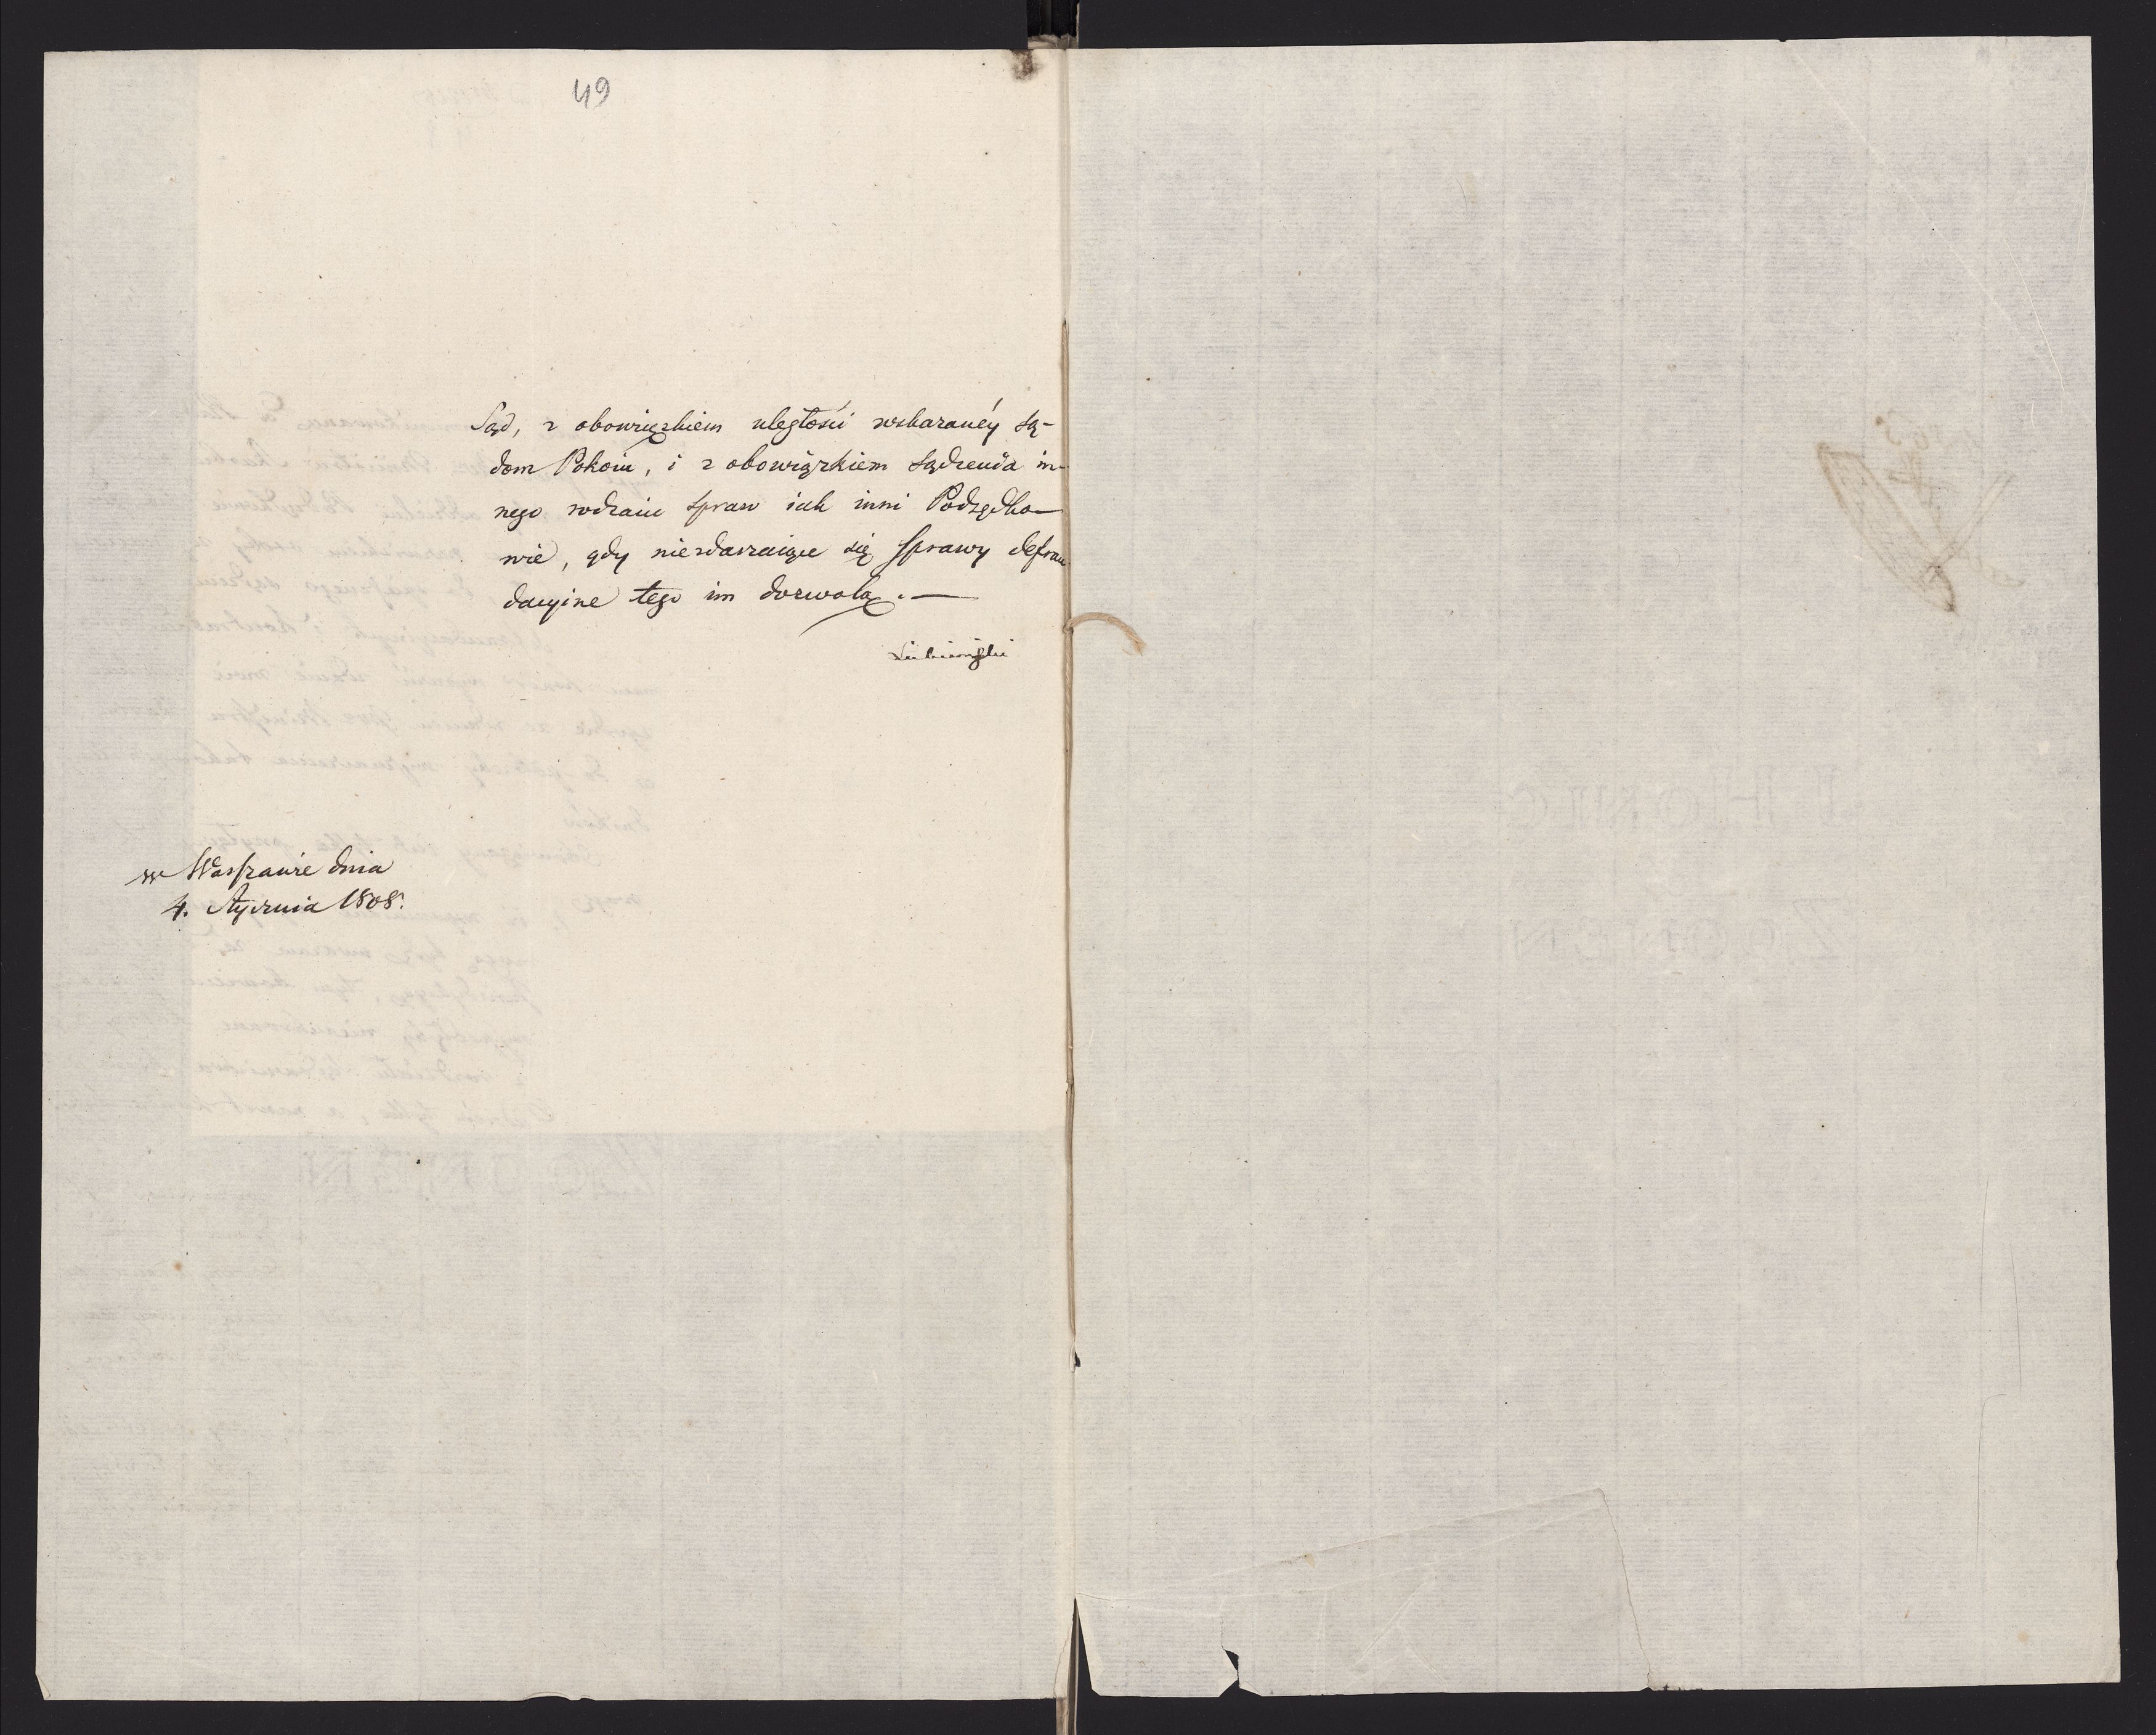 49
Sąd, z obowiązkiem uległości wskazanéy Są-
dom Pokoiu, i z obowiązkiem sądzenia in-
nego rodzaiu spraw iak inni Podsędko-
wie, gdy niezdarzaiące się sprawy defrau
dacyine tego im dozwolą. —
Łubieński
w Warszawie dnia
4. Stycznia 1808.